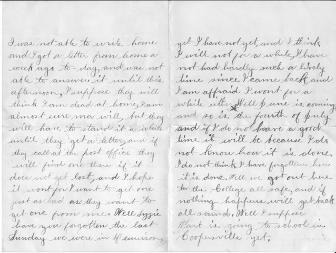 I was not able to write home
and I got a letter from home a
week ago to-day, and was not
able to answer it until this
afternoon, I suppose they will
think I am dead at home, I am
almost sure ma will, but they
will have to stand it a while
until they get my letter, and if
they call at the post office they
will find one there if it
does not get lost, and I hope
it wont for I want to get one
just as bad as they want to
get one from me. Well Lizzie
have you forgotten the last
Sunday we were in
yet I have not yet, and I think
I will not for a while, I have
not had hardly such a lively
time since I came back and
I am afraid I wont for a
while either. Well June is coming
and so is the fourth of July
and if I do not have a good
time it will be because I do
not know how it is done,
I do not think I have forgotten how
it is done. Well we got out here
to the College all safe, and if
nothing happens will get back
all sound. Well I suppose
is going to school in
Coopersville yet.